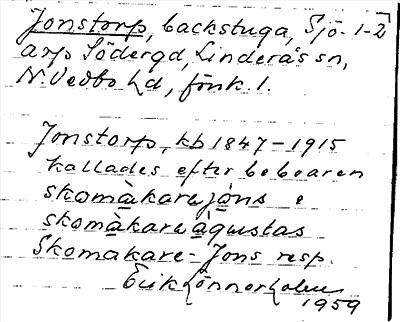 Jonstorp, backstuga, Sjö. 1-2
arp Södergd, Linderås sn,
N. Vedbo hd, Jönk. l.
Jonstorp, kb 1847-1915
kallades efter beboaren
skomàkarejóns o
skomàkareàgustas
Skomakare-Jons resp.
Erik Lönnerholm
1959